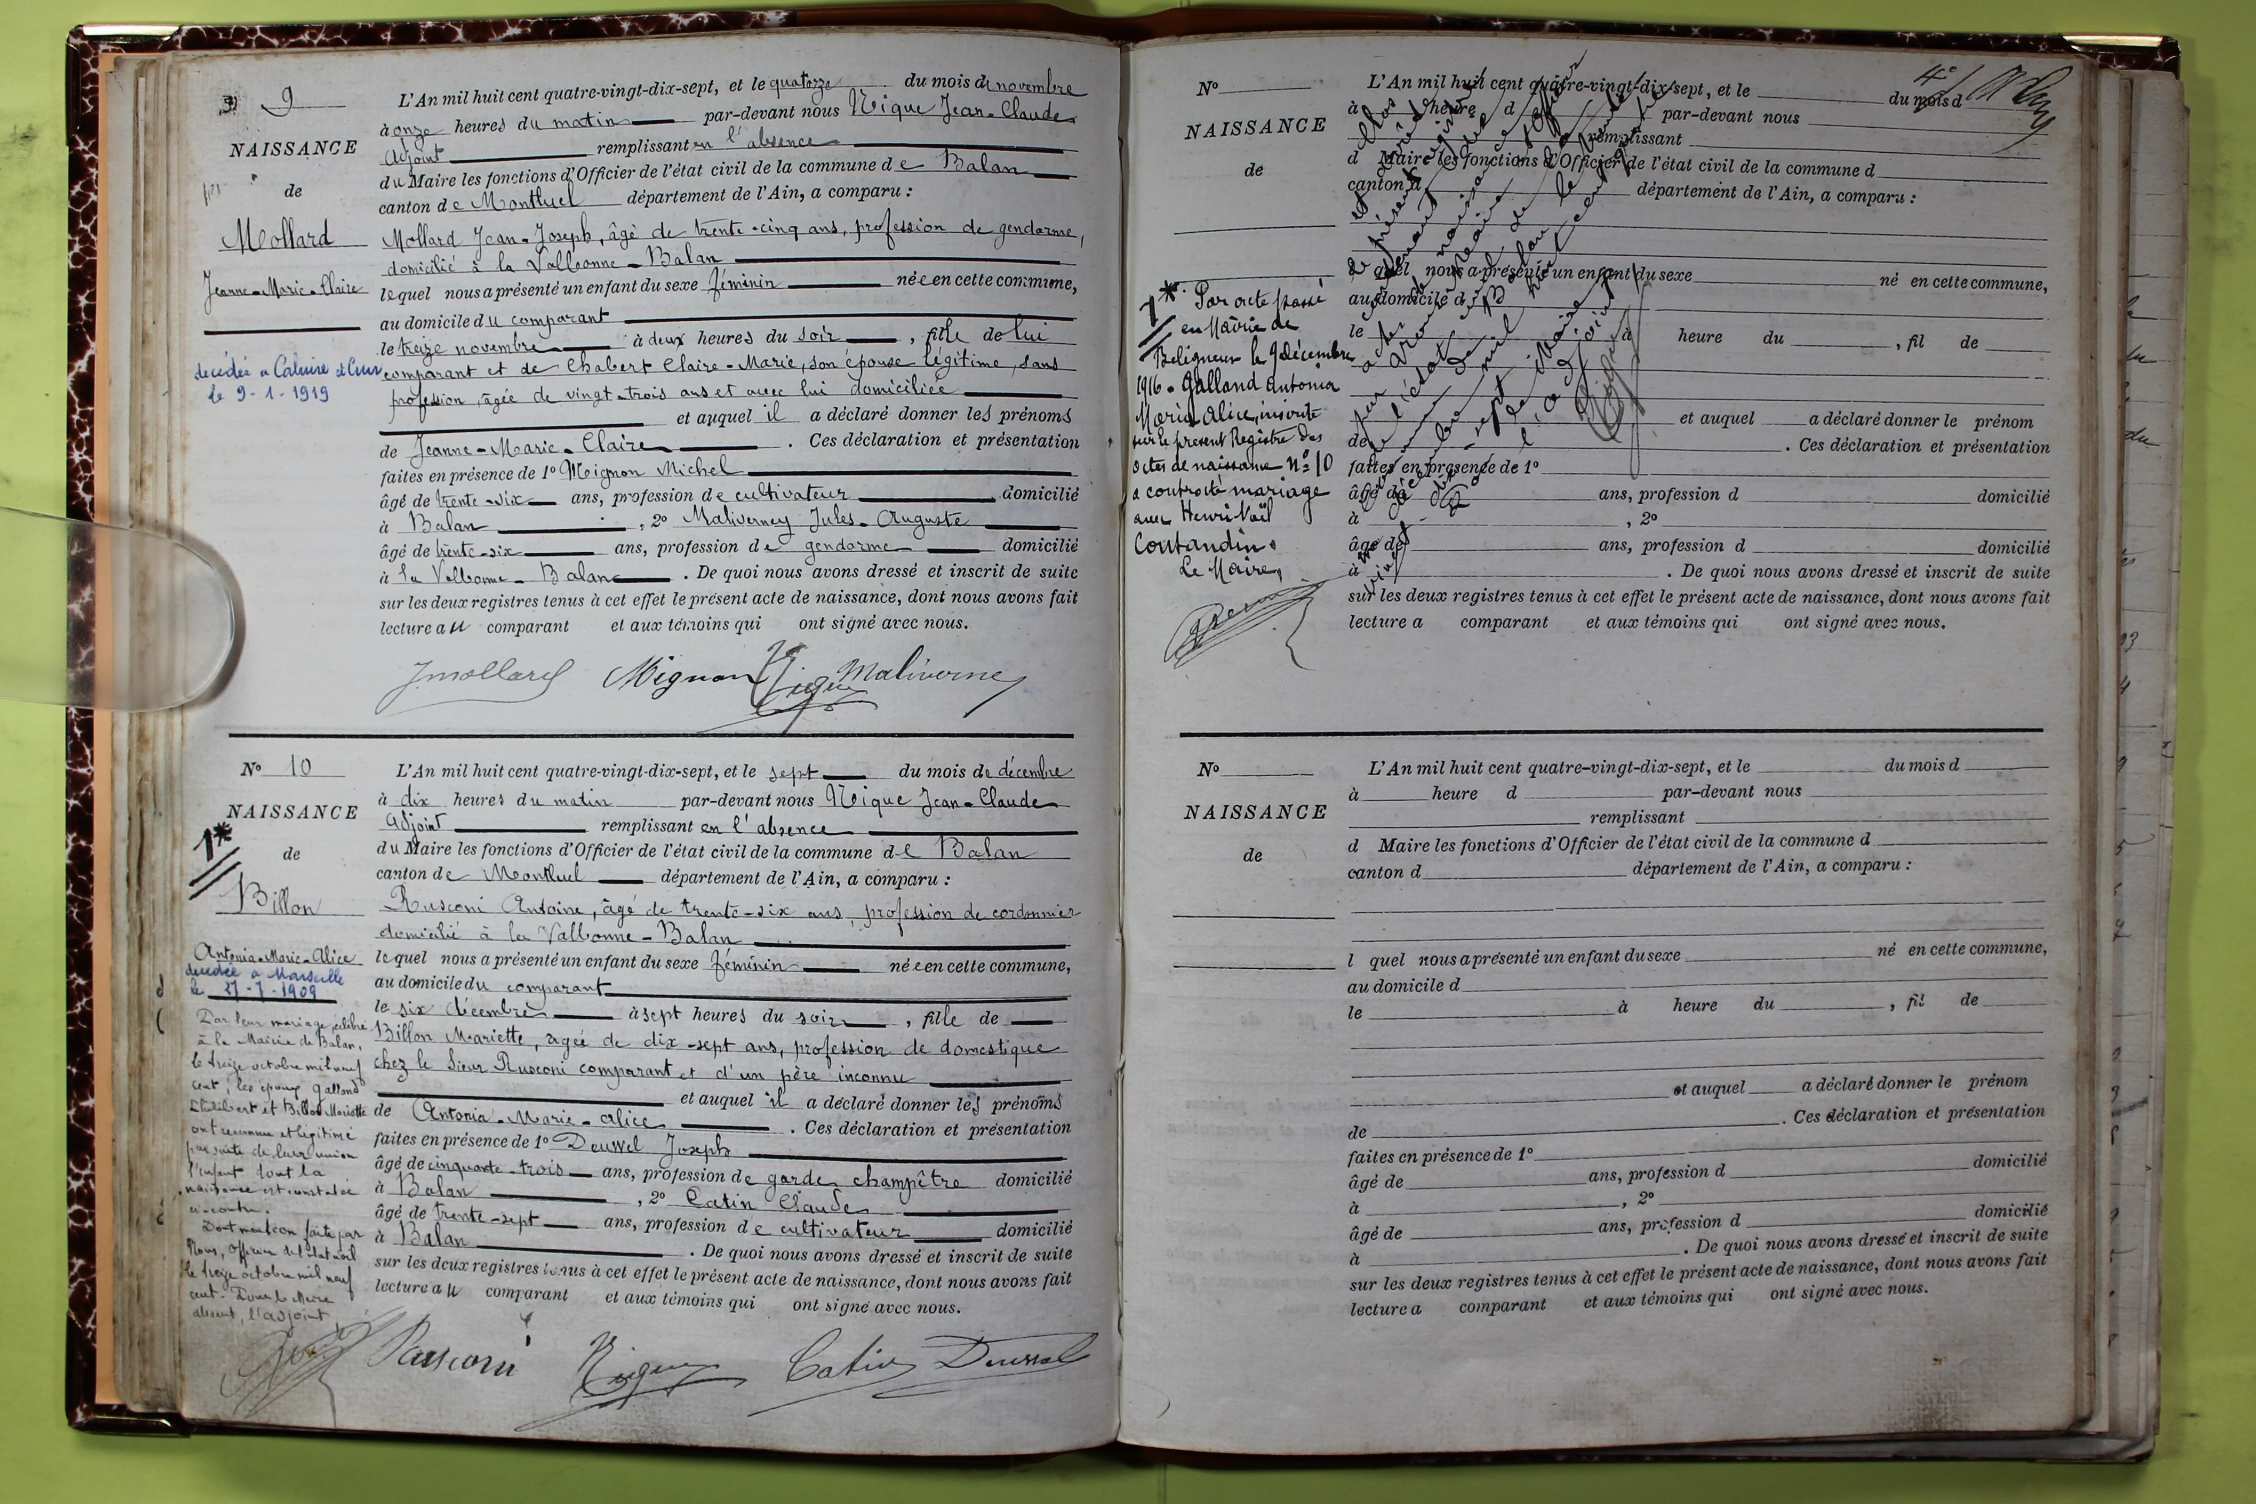 9
NAISSANCE
de
Mollard
Jeanne-Marie-Claire
decédée a Caluire et Cuire
le 9-1-1919
L'An mil huit cent quatre-vingt-dix-sept, et le quatorze du mois de novembre
à onze heures du matin par-devant nous Nique Jean-Claude
adjoint remplissant en l'absence
du Maire les fonctions d'Officier de l'état civil de la commune de Balan
canton de Montluel département de l'Ain, a comparu :
Mollard Jean-Joseph, âgé de trente-cinq ans, profession de gendarme,
domicilié à la Valbonne-Balan
lequel nous a présenté un enfant du sexe féminin née en cette commune,
au domicile du comparant
le treize novembre à deux heures du soir, fille de lui
comparant et de Chabert Claire-Marie, son épouse légitime, sans
profession, âgée de vingt-trois ans et avec lui domiciliée
et auquel il a déclaré donner les prénoms
de Jeanne-Marie-Claire. Ces déclaration et présentation
faites en présence de 1º Mignon Michel
âgé de trente-six ans, profession de cultivateur domicilié
à Balan, 2º Maliverney Jules-Auguste
âgé de trente-six ans, profession de gendarme domicilié
à la Valbonne-Balan. De quoi nous avons dressé et inscrit de suite
sur les deux registres tenus à cet effet le présent acte de naissance, dont nous avons fait
lecture au comparant et aux témoins qui ont signé avec nous.
J. mollard Mignon Nique Maliverney
Nº 10
NAISSANCE
1*
de
Billon
Antonia-Marie-Alice
decédée a Marseille
le 27-7-1909
Par leur mariage célébré
à la Mairie de Balan,
le treize octobre mil neuf
cent, les époux Galland
Philibert et Billon Mariette
ont reconnu et légitimé
par suite de leur union
l'enfant dont la
naissance est constatée
ci-contre.
Dont mention faite par
Nous, Officier de l'état civil
le treize octobre mil neuf
cent. Pour le Maire
absent, l'adjoint
L'An mil huit cent quatre-vingt-dix-sept, et le sept du mois de décembre
à dix heures du matin par-devant nous Nique Jean-Claude
adjoint remplissant en l'absence
du Maire les fonctions d'Officier de l'état civil de la commune de Balan
canton de Montluel département de l'Ain, a comparu :
Rusconi Antoine, âgé de trente-six ans, profession de cordonnier
domicilié à la Valbonne-Balan
lequel nous a présenté un enfant du sexe féminin née en cette commune,
au domicile du comparant
le six décembre à sept heures du soir, fille de
Billon Mariette, agée de dix-sept ans, profession de domestique
chez le Sieur Rusconi comparant et d'un père inconnu
et auquel il a déclaré donner les prénoms
de Antonia-Marie-Alice. Ces déclaration et présentation
faites en présence de 1º Joseph
âgé de cinquante-trois ans, profession de garde champêtre domicilié
à Balan, 2º Catin Claude
âgé de trente-sept ans, profession de cultivateur domicilié
à Balan. De quoi nous avons dressé et inscrit de suite
sur les deux registres tenus à cet effet le présent acte de naissance, dont nous avons fait
lecture au comparant et aux témoins qui ont signé avec nous.
Rusconi Nique Catin
Nº
NAISSANCE
de
1*
Par acte passé
en Mairie de
Beligneux le 9 décembre
1916 - Galland Antonia
Maria Alice, inscrite
sur le présent Registre des
actes de naissance nº 10
a contracté mariage
avec Henri Noël
Coutandin.
Le Maire,
L'An mil huit cent quatre-vingt-dix-sept, et le du mois d
à heure d par-devant nous
remplissant
d Maire les fonctions d'Officier de l'état civil de la commune d
canton d département de l'Ain, a comparu :
l quel nous a présenté un enfant du sexe né en cette commune,
au domicile d
le à heure du , fil de
et auquel a déclaré donner le prénom
de . Ces déclaration et présentation
faites en présence de 1º
âgé de ans, profession d domicilié
à , 2º
âgé de ans, profession d domicilié
à . De quoi nous avons dressé et inscrit de suite
sur les deux registres tenus à cet effet le présent acte de naissance, dont nous avons fait
lecture a comparant et aux témoins qui ont signé avec nous.
Nº
NAISSANCE
de
L'An mil huit cent quatre-vingt-dix-sept, et le du mois d
à heure d par-devant nous
remplissant
d Maire les fonctions d'Officier de l'état civil de la commune d
canton d département de l'Ain, a comparu :
l quel nous a présenté un enfant du sexe né en cette commune,
au domicile d
le à heure du , fil de
et auquel a déclaré donner le prénom
de . Ces déclaration et présentation
faites en présence de 1º
âgé de ans, profession d domicilié
à , 2º
âgé de ans, profession d domicilié
à . De quoi nous avons dressé et inscrit de suite
sur les deux registres tenus à cet effet le présent acte de naissance, dont nous avons fait
lecture a comparant et aux témoins qui ont signé avec nous.